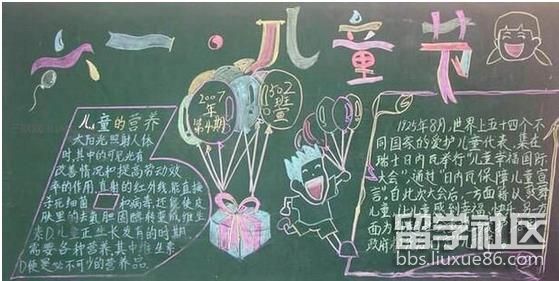 六一·儿童节
儿童的营养
太阳光照射人体
时,其中的可见光有
改善情况和提高劳动效
率的作用,直射的红外线,能直接
杀死细菌和病毒,还能使皮
肤里的去氧胆固醇转变成维生
素D.儿童正生长发育的时期
需要各种营养,其中维生素
D便是必不可少的营养品。
2007
年
第4期
1502
班
宣
1925年8月,世界上五十四个不
同国家的爱护儿童代表,集在
瑞士日内瓦举行"儿童幸福国际
大会",通过"日内瓦保障儿童宣
言。自此次大会后,一方面藉以鼓舞
儿童,儿童感到幸福
面为
政府
留学社区
bbs.liuxue86.com